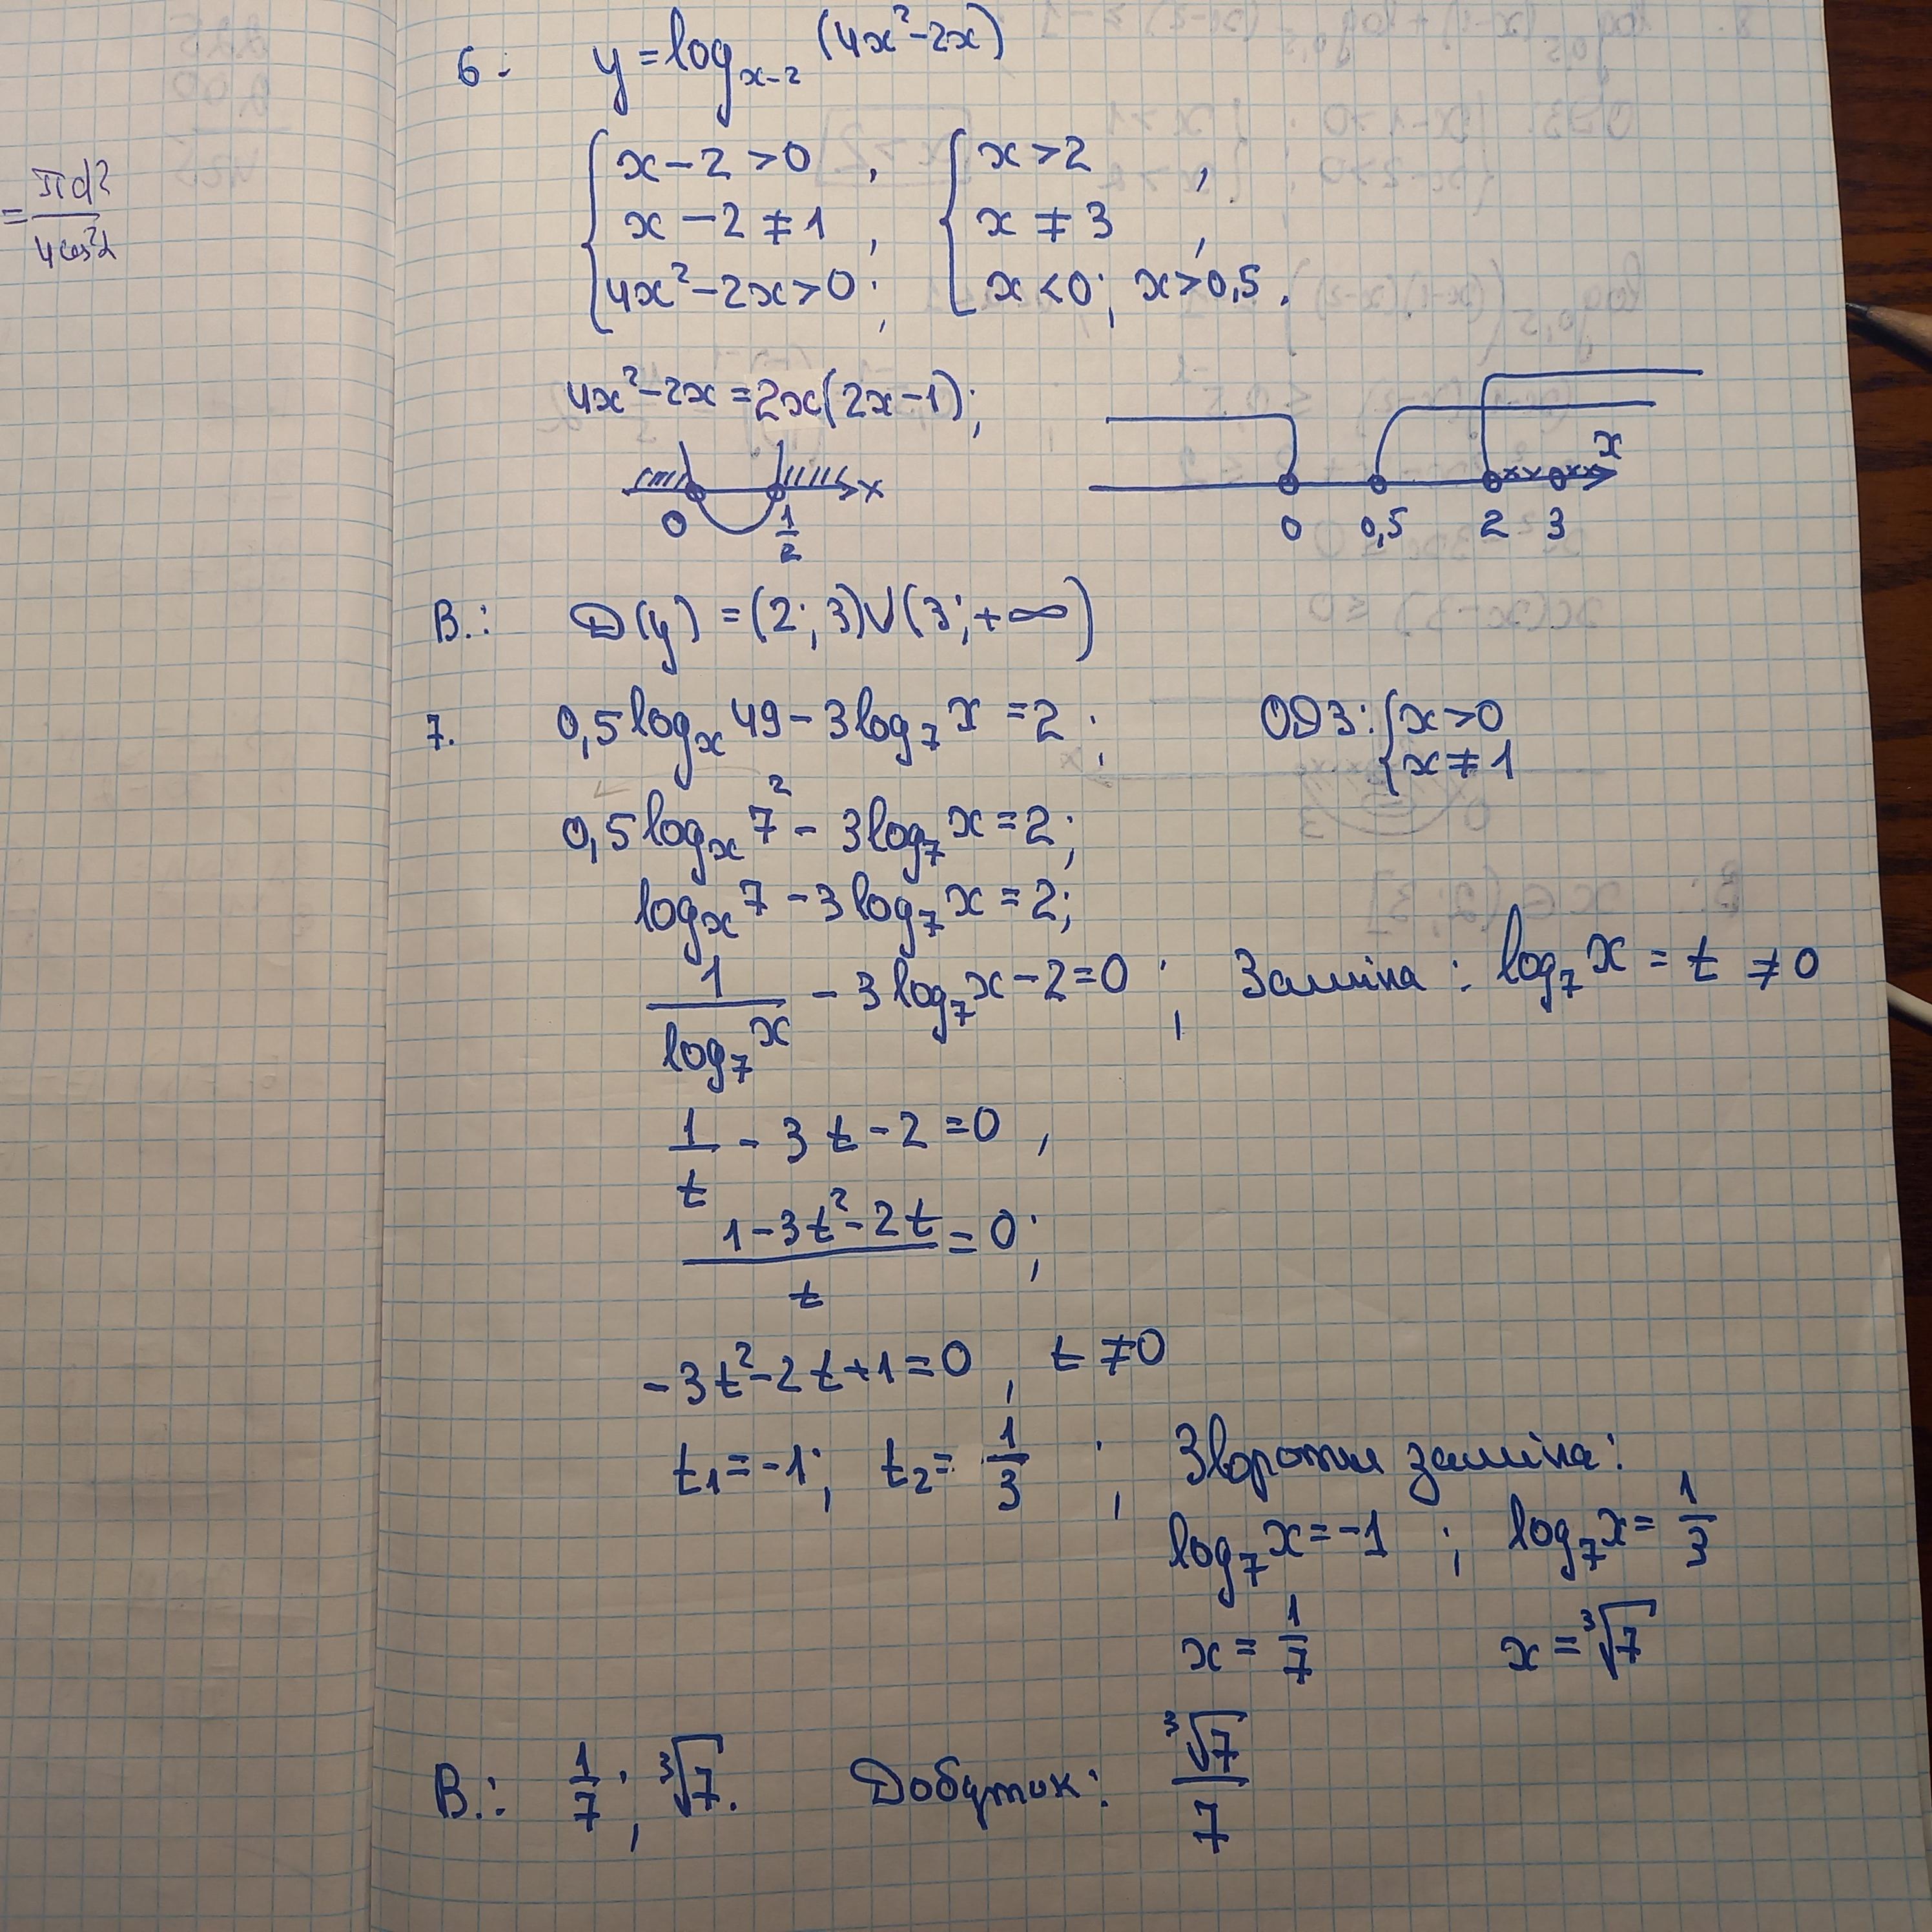 = πd² / 4cos²α
6. y = log_{x-2} (4x²-2x)
{ x-2>0, { x>2,
x-2≠1, x≠3,
4x²-2x>0; x<0; x>0,5.
4x²-2x=2x(2x-1);
0 1/2 x
0 0,5 2 3 x
В.: D(y) = (2; 3)∪(3; +∞)
7. 0,5log_x 49 - 3log_7 x = 2; ОДЗ: { x>0
x≠1
0,5log_x 7² - 3log_7 x = 2;
log_x 7 - 3log_7 x = 2;
1/log_7 x - 3log_7 x - 2 = 0; Заміна: log_7 x = t ≠ 0
1/t - 3t - 2 = 0,
(1-3t²-2t)/t = 0;
-3t²-2t+1=0, t≠0
t₁=-1; t₂=1/3; Зворотна заміна:
log_7 x = -1; log_7 x = 1/3
x = 1/7 x = ∛7
В.: 1/7; ∛7. Добуток: ∛7/7